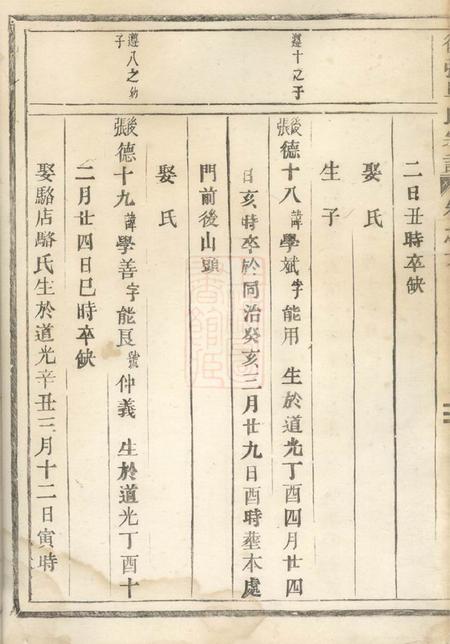 二日丑時卒缺
娶氏
生子
遵十之子
後張德十八諱學斌字能用 生於道光丁酉四月廿四
日亥時卒於同治癸亥三月廿九日酉時塟本處
門前後山頭
娶氏
遵八之幼子
後張德十九諱學善字能艮號仲義 生於道光丁酉十
二月廿四日巳時卒缺
娶駱店駱氏生於道光辛丑三月十二日寅時